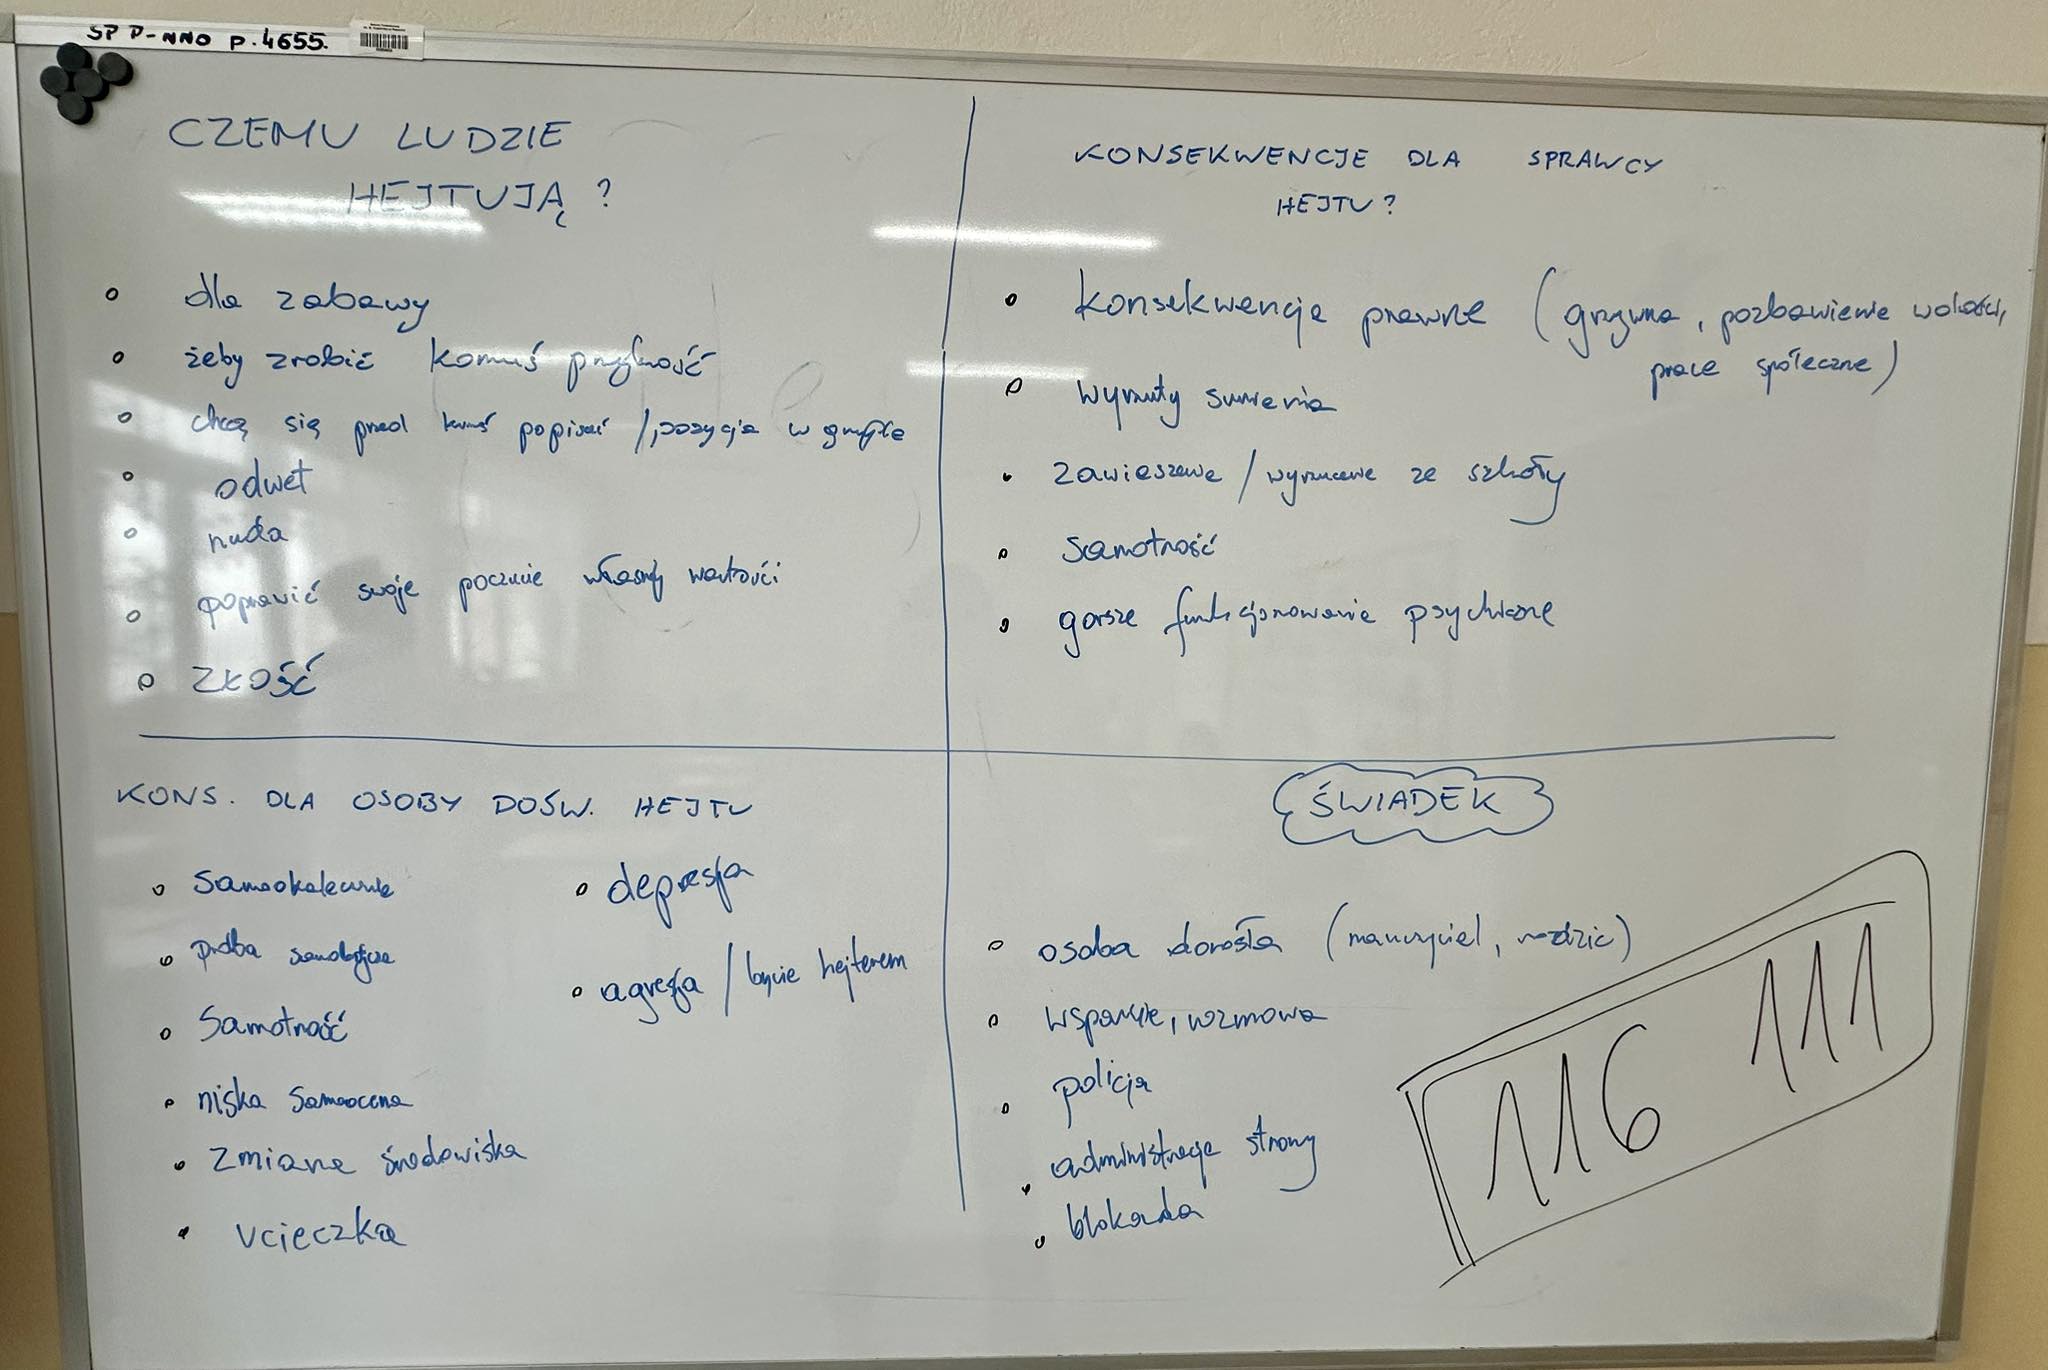 SP P-NNO P.4655.
CZEMU LUDZIE
HEJTUJĄ?
dla zabawy
żeby zrobić komuś przykrość
chcą się przed kimś popisać / pozycja w grupie
odwet
nuda
poprawić swoje poczucie własnej wartości
ZŁOŚĆ
KONSEKWENCJE DLA SPRAWCY
HEJTU?
konsekwencje prawne (grzywna, pozbawienie wolności,
prace społeczne)
wyrzuty sumienia
zawieszenie / wyrzucenie ze szkoły
samotność
gorsze funkcjonowanie psychiczne
KONS. DLA OSOBY DOŚW. HEJTU
samookaleczenie
próba samobójcza
samotność
niska samoocena
zmiana środowiska
ucieczka
depresja
agresja / bycie hejterem
ŚWIADEK
osoba dorosła (nauczyciel, rodzic)
wsparcie, rozmowa
policja
administracja strony
blokada
116 111